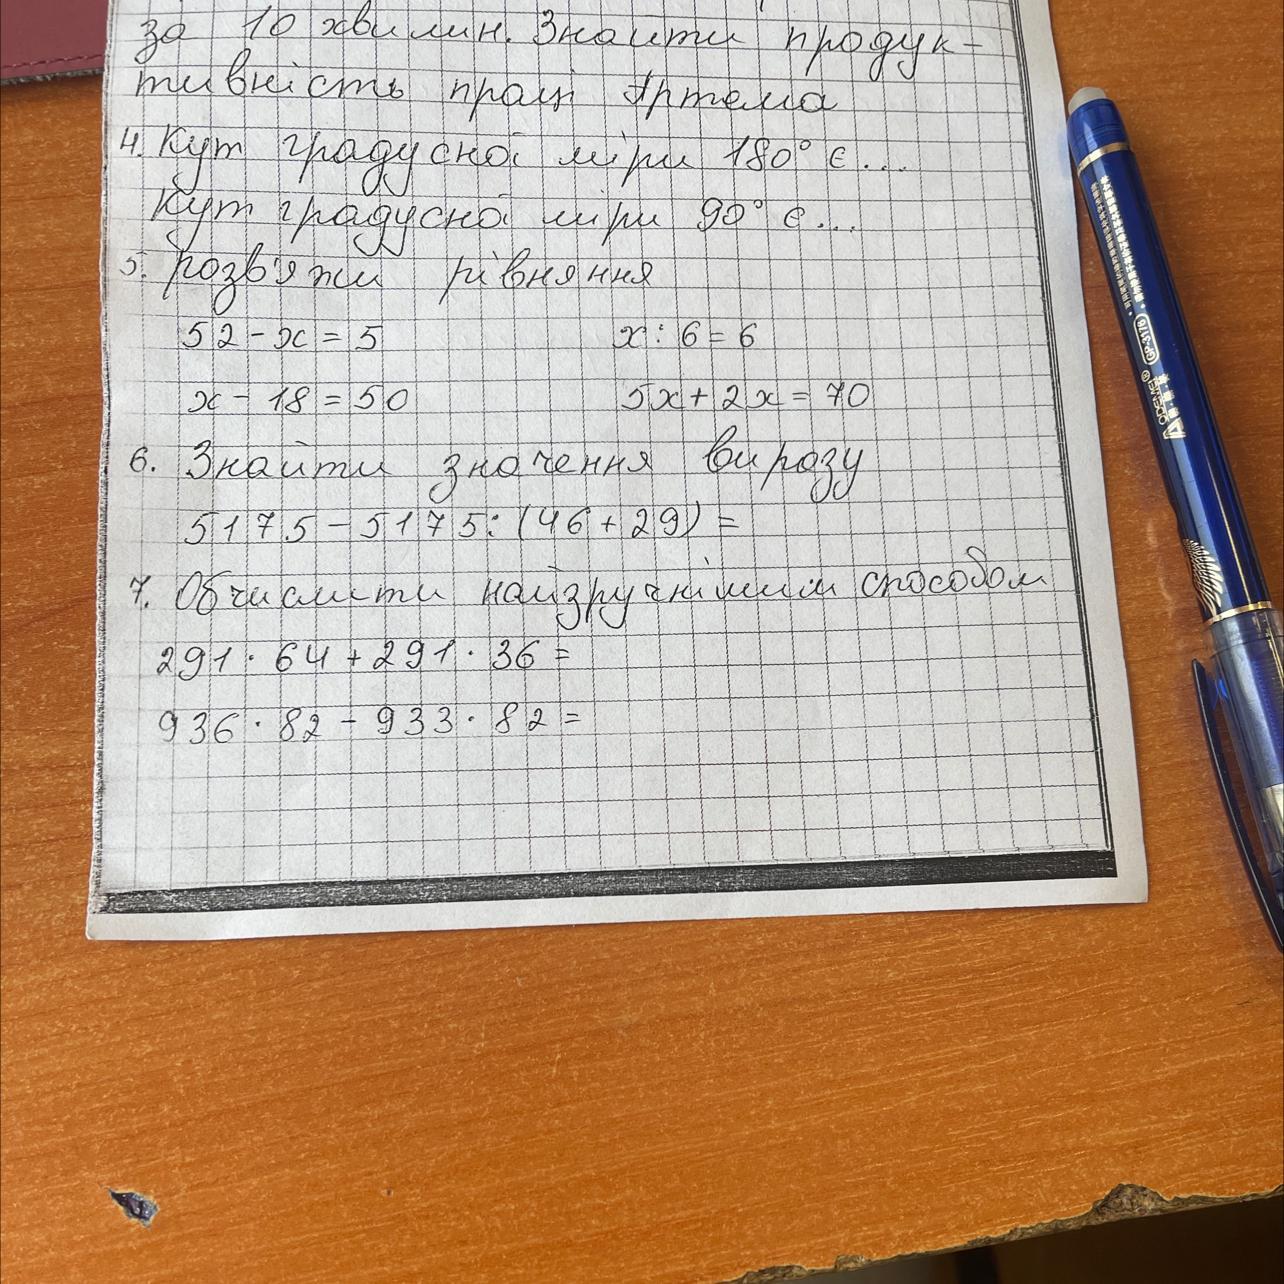 за 10 хвилин. Знайти продук-
тивність праці Артема
4. Кут градусної міри 180° є...
Кут градусної міри 90° є...
5. Розв'яжи рівняння
52 - x = 5 x : 6 = 6
x - 18 = 50 5x + 2x = 70
6. Знайти значення виразу
5175 - 5175 : (46 + 29) =
7. Обчислити найзручнішим способом
291 · 64 + 291 · 36 =
936 · 82 - 933 · 82 =
GP-3176